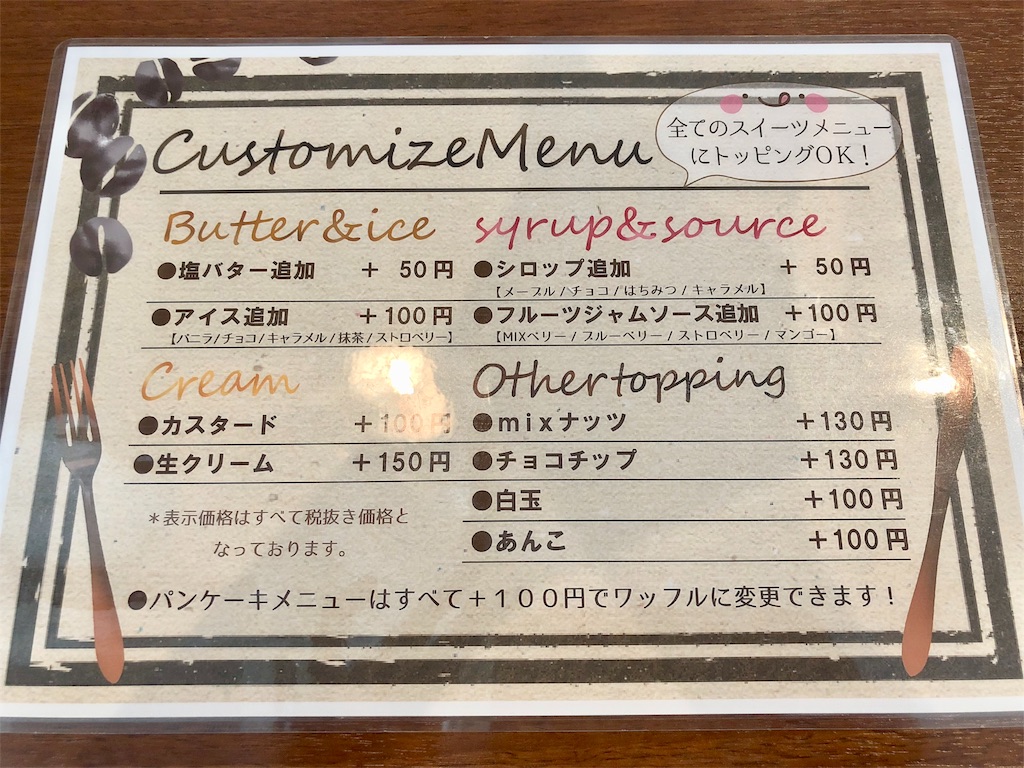 CustomizeMenu
全てのスイーツメニュー
にトッピングOK！
Butter&ice
●塩バター追加 ＋ 50円
●アイス追加 ＋100円
【バニラ/チョコ/キャラメル/抹茶/ストロベリー】
syrup&source
●シロップ追加 ＋ 50円
【メープル/チョコ/はちみつ/キャラメル】
●フルーツジャムソース追加 ＋100円
【MIXベリー/ブルーベリー/ストロベリー/マンゴー】
Cream
●カスタード ＋100円
●生クリーム ＋150円
＊表示価格はすべて税抜き価格と
なっております。
Othertopping
●mixナッツ ＋130円
●チョコチップ ＋130円
●白玉 ＋100円
●あんこ ＋100円
●パンケーキメニューはすべて＋１００円でワッフルに変更できます！